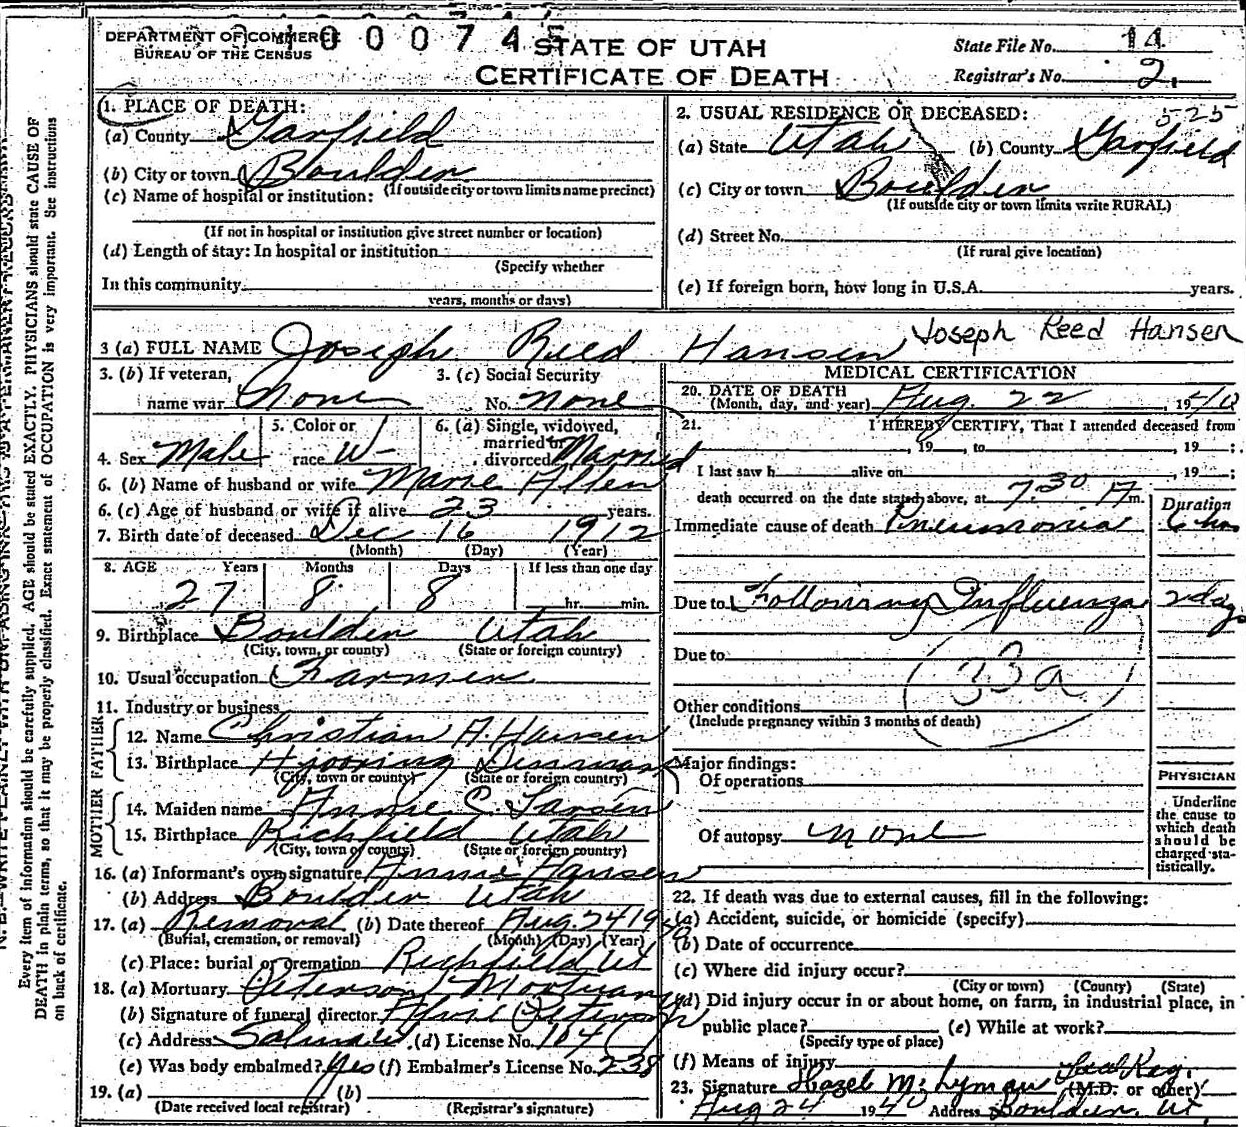 DEPARTMENT OF COMMERCE
BUREAU OF THE CENSUS
STATE OF UTAH
CERTIFICATE OF DEATH
State File No. 14
Registrar's No. 2.
1. PLACE OF DEATH:
(a) County Garfield
(b) City or town Boulder
(If outside city or town limits name precinct)
(c) Name of hospital or institution:
(If not in hospital or institution give street number or location)
(d) Length of stay: In hospital or institution
(Specify whether
In this community
years, months or days)
2. USUAL RESIDENCE OF DECEASED: 525
(a) State Utah (b) County Garfield
(c) City or town Boulder
(If outside city or town limits write RURAL)
(d) Street No.
(If rural give location)
(e) If foreign born, how long in U.S.A. years.
3 (a) FULL NAME Joseph Reed Hansen Joseph Reed Hansen
3. (b) If veteran, name war None
3. (c) Social Security No. none
4. Sex Male
5. Color or race W-
6. (a) Single, widowed, married or divorced Married
6. (b) Name of husband or wife Marie Allen
6. (c) Age of husband or wife if alive 23 years.
7. Birth date of deceased Dec 16 1912
(Month) (Day) (Year)
8. AGE Years Months Days If less than one day
27 8 8 hr. min.
9. Birthplace Boulder Utah
(City, town, or county) (State or foreign country)
10. Usual occupation Farmer
11. Industry or business
FATHER
12. Name Christian A. Hansen
13. Birthplace Hjorring Denmark
(City, town or county) (State or foreign country)
MOTHER
14. Maiden name Annie C. Larsen
15. Birthplace Richfield Utah
(City, town or county) (State or foreign country)
16. (a) Informant's own signature Annie Hansen
(b) Address Boulder Utah
17. (a) Removal (b) Date thereof Aug 24 1940
(Burial, cremation, or removal) (Month) (Day) (Year)
(c) Place: burial or cremation Richfield Ut
18. (a) Mortuary Peterson Mortuary
(b) Signature of funeral director Peterson
(c) Address Salina Ut. (d) License No. 164
(e) Was body embalmed? Yes (f) Embalmer's License No. 238
19. (a) (b)
(Date received local registrar) (Registrar's signature)
MEDICAL CERTIFICATION
20. DATE OF DEATH
(Month, day, and year) Aug. 22, 1940
21. I HEREBY CERTIFY, That I attended deceased from
, 19 , to , 19 ;
I last saw h alive on 19 ;
death occurred on the date stated above, at 7:30 m.
Duration
Immediate cause of death Pneumonia
Due to Following Influenza 2 days
Due to
33a
Other conditions
(Include pregnancy within 3 months of death)
Major findings:
Of operations
Of autopsy none
PHYSICIAN
Underline
the cause to
which death
should be
charged sta-
tistically.
22. If death was due to external causes, fill in the following:
(a) Accident, suicide, or homicide (specify)
(b) Date of occurrence
(c) Where did injury occur?
(City or town) (County) (State)
(d) Did injury occur in or about home, on farm, in industrial place, in
public place? (e) While at work?
(Specify type of place)
(f) Means of injury
23. Signature Hazel M. Lyman Local Reg. (M.D. or other)
Aug 24 1940 Address Boulder, Ut.
Every item of information should be carefully supplied. AGE should be stated EXACTLY. PHYSICIANS should state CAUSE OF
DEATH in plain terms, so that it may be properly classified. Exact statement of OCCUPATION is very important. See instructions
on back of certificate.